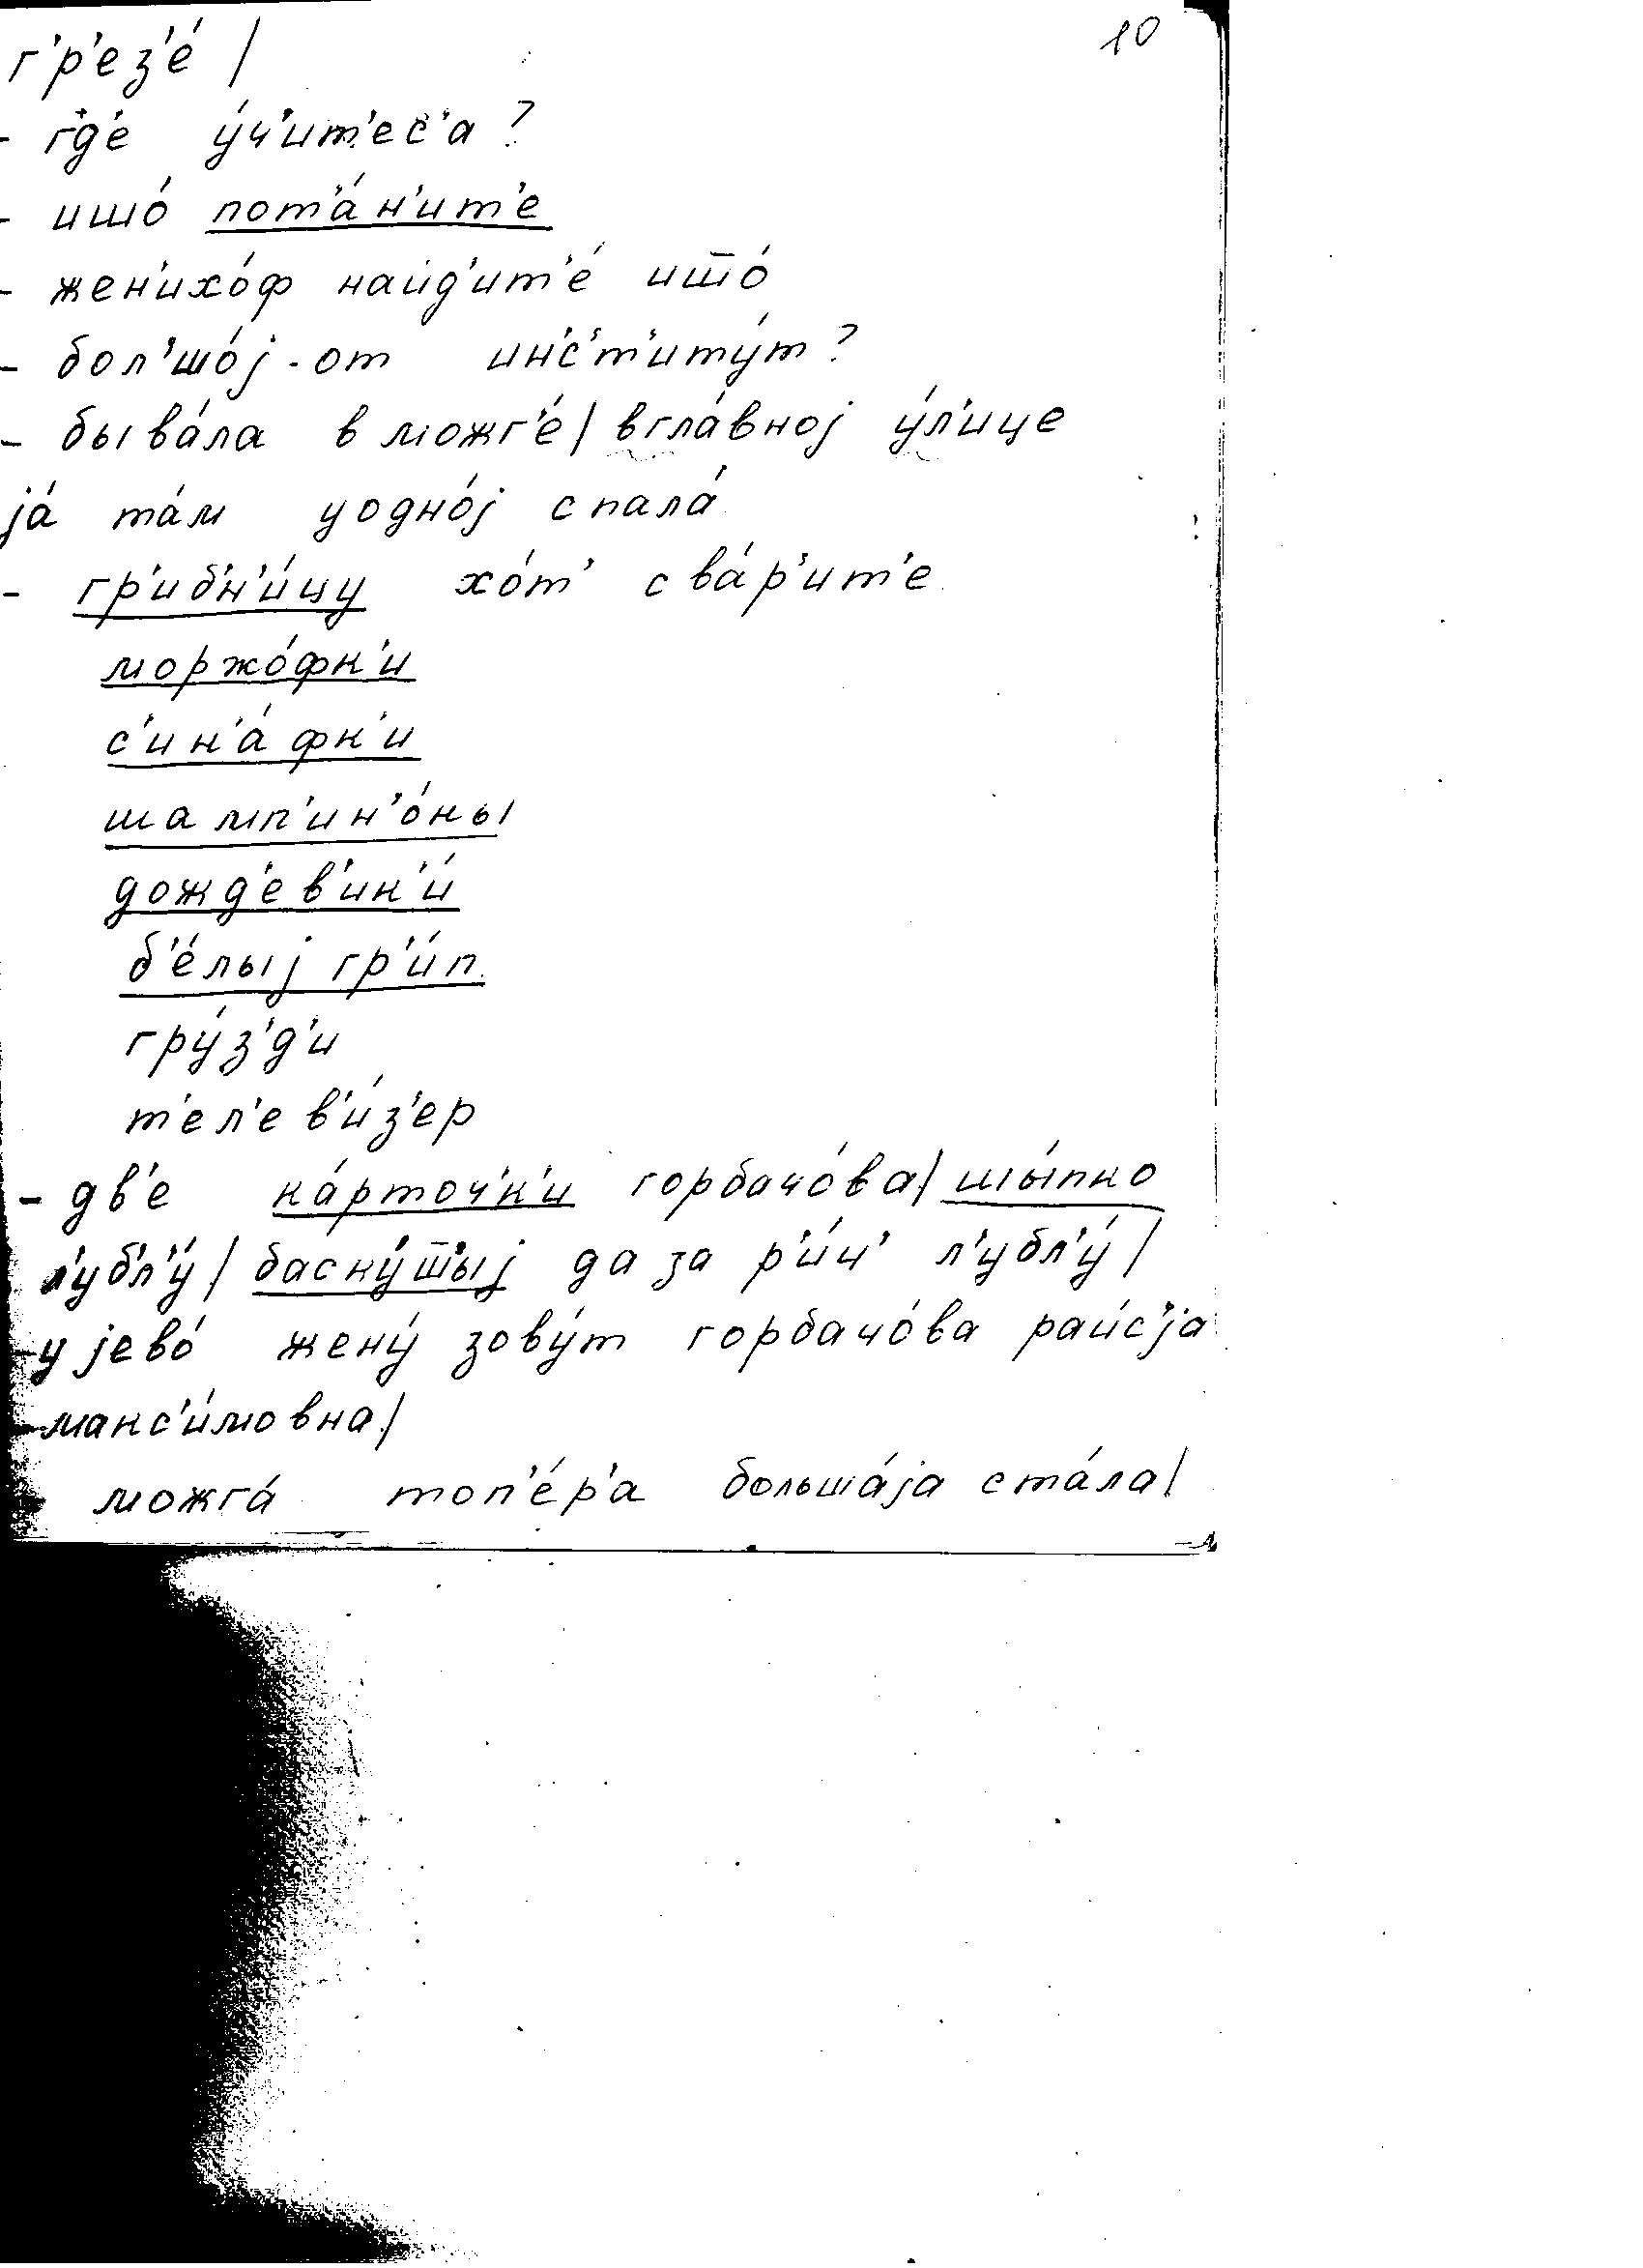 10
г'р'ез'е́ /
- г'д'е у́ч'ит'ес'а ?
- ишо́ пот'а́н'ит'е
- жен'ихо́ф найд'ит'е́ иш̅о́
- бол'шо́ј-от ин'с'т'иту́т ?
- быва́ла в можг'е́ / в гла́вној у́л'ице
ја́ та́м у одно́ј спала́
- гр'иб'н'и́цу хо́т' сва́р'ит'е
моржо́фк'и
с'ин'а́фк'и
шамп'ин'о́ны
дожд'ев'ик'и́
б'е́лыј гр'и́п
гру́з'д'и
т'ел'ев'и́з'ер
- дв'е ка́рточ'к'и горбачо́ва / шы́пко
л'убл'у́ / баску́ш̅ыј да за р'и́ч' л'убл'у́ /
- у јево́ жену́ зову́т горбачо́ва раи́с'ја
- макс'и́мовна /
можга́ топ'е́р'а больша́ја ста́ла /